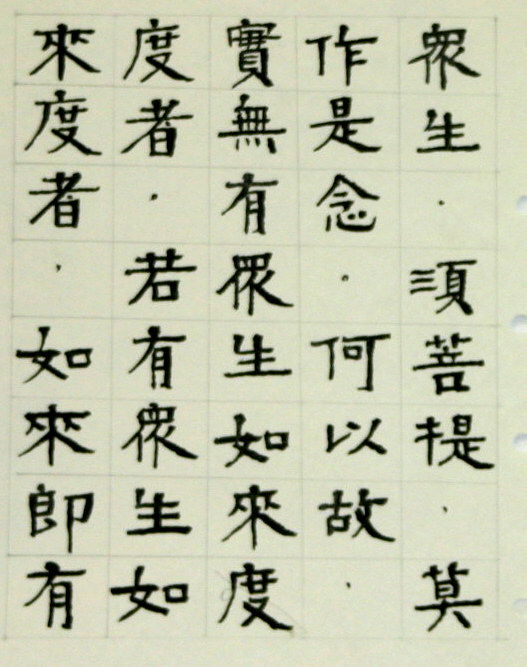 眾生．須菩提．莫
作是念．何以故．
實無有眾生如來度
度者．若有眾生如
來度者．如來即有